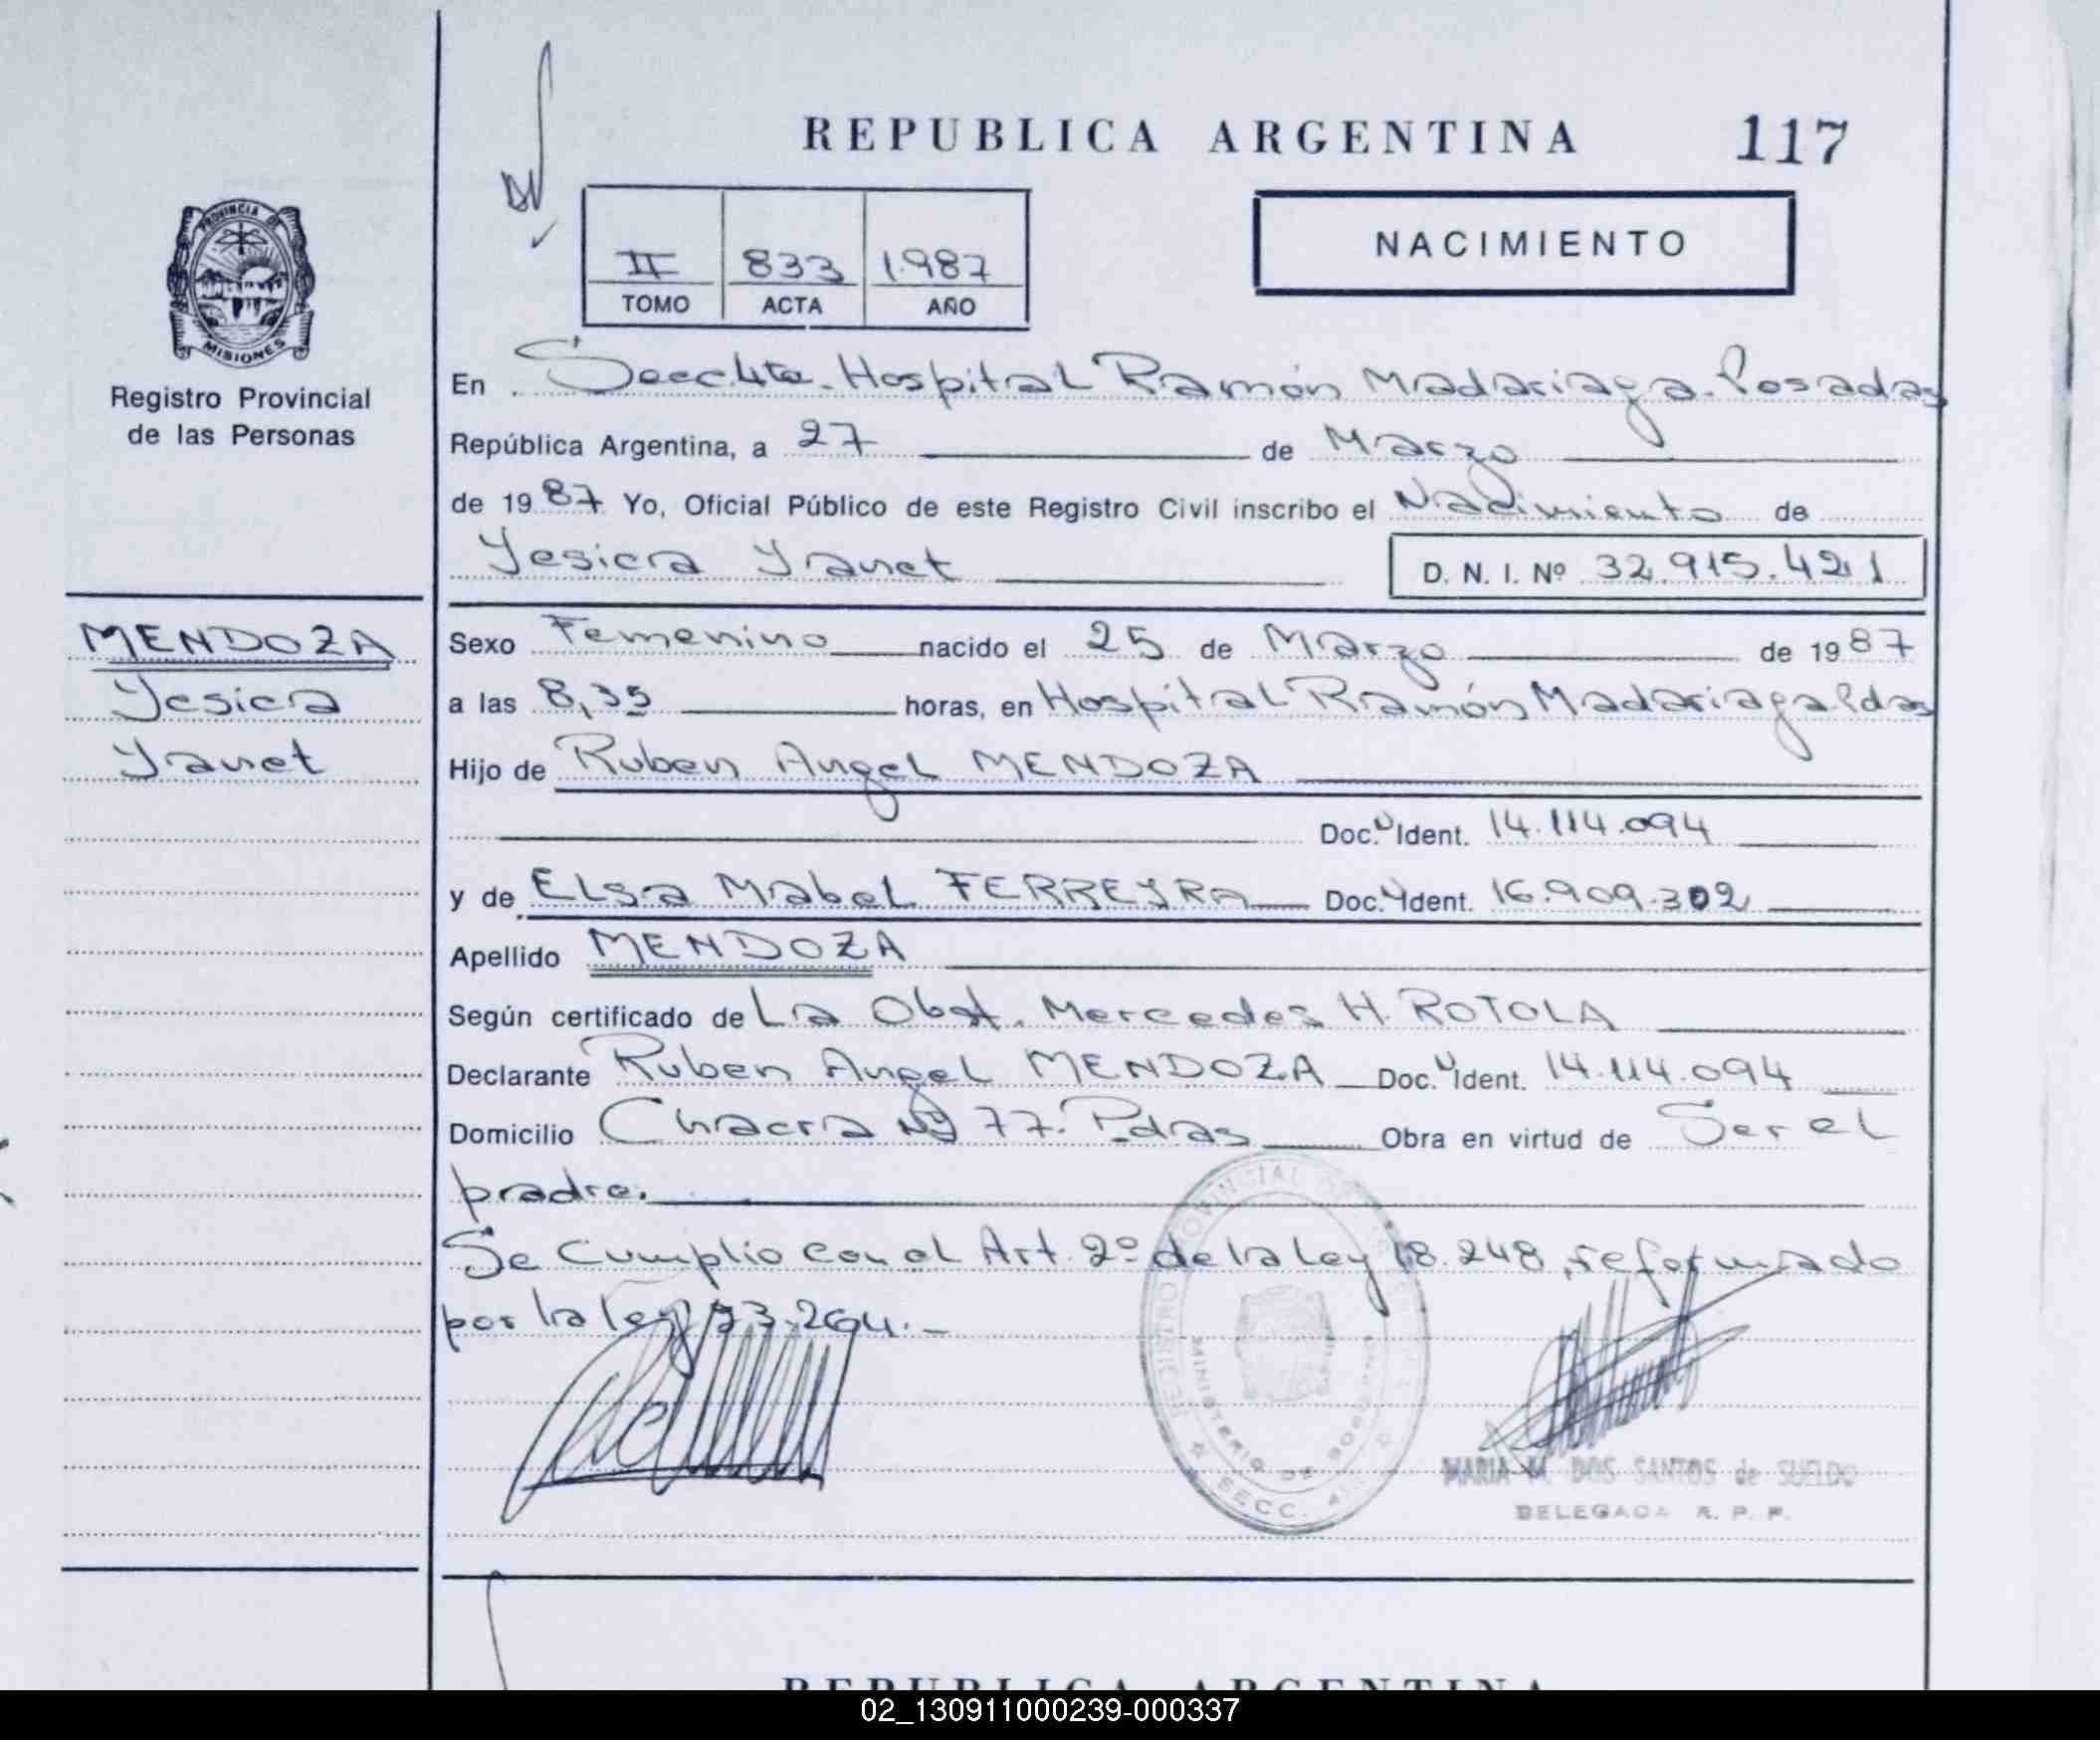 REPUBLICA ARGENTINA
117
II 833 1.987
TOMO ACTA AÑO
NACIMIENTO
PROVINCIA DE
MISIONES
Registro Provincial
de las Personas
MENDOZA
Yesica
Yanet
En Secc. 4ta. Hospital Ramón Madariaga. Posadas
República Argentina, a 27 de Marzo
de 1987 Yo, Oficial Público de este Registro Civil inscribo el Nacimiento de
Yesica Yanet D. N. I. Nº 32.915.421
Sexo Femenino nacido el 25 de Marzo de 1987
a las 8,35 horas, en Hospital Ramón Madariaga Pdas
Hijo de Ruben Angel MENDOZA
Doc. Ident. 14.114.094
y de Elsa Mabel FERREYRA Doc. Ident. 16.909.302
Apellido MENDOZA
Según certificado de La Obst. Mercedes H. ROTOLA
Declarante Ruben Angel MENDOZA Doc. Ident. 14.114.094
Domicilio Chacra Nº 77. Pdas Obra en virtud de Ser el
padre.
Se Cumplio con el Art. 2º de la Ley 18.248, reformado
por la ley 23.264.-
REGISTRO PROVINCIAL DE
MINISTERIO DE GOBIERNO
SECC. 4
MARIA M. DOS SANTOS de SUELDO
DELEGADA R. P. P.
REPUBLICA ARGENTINA
02_130911000239-000337